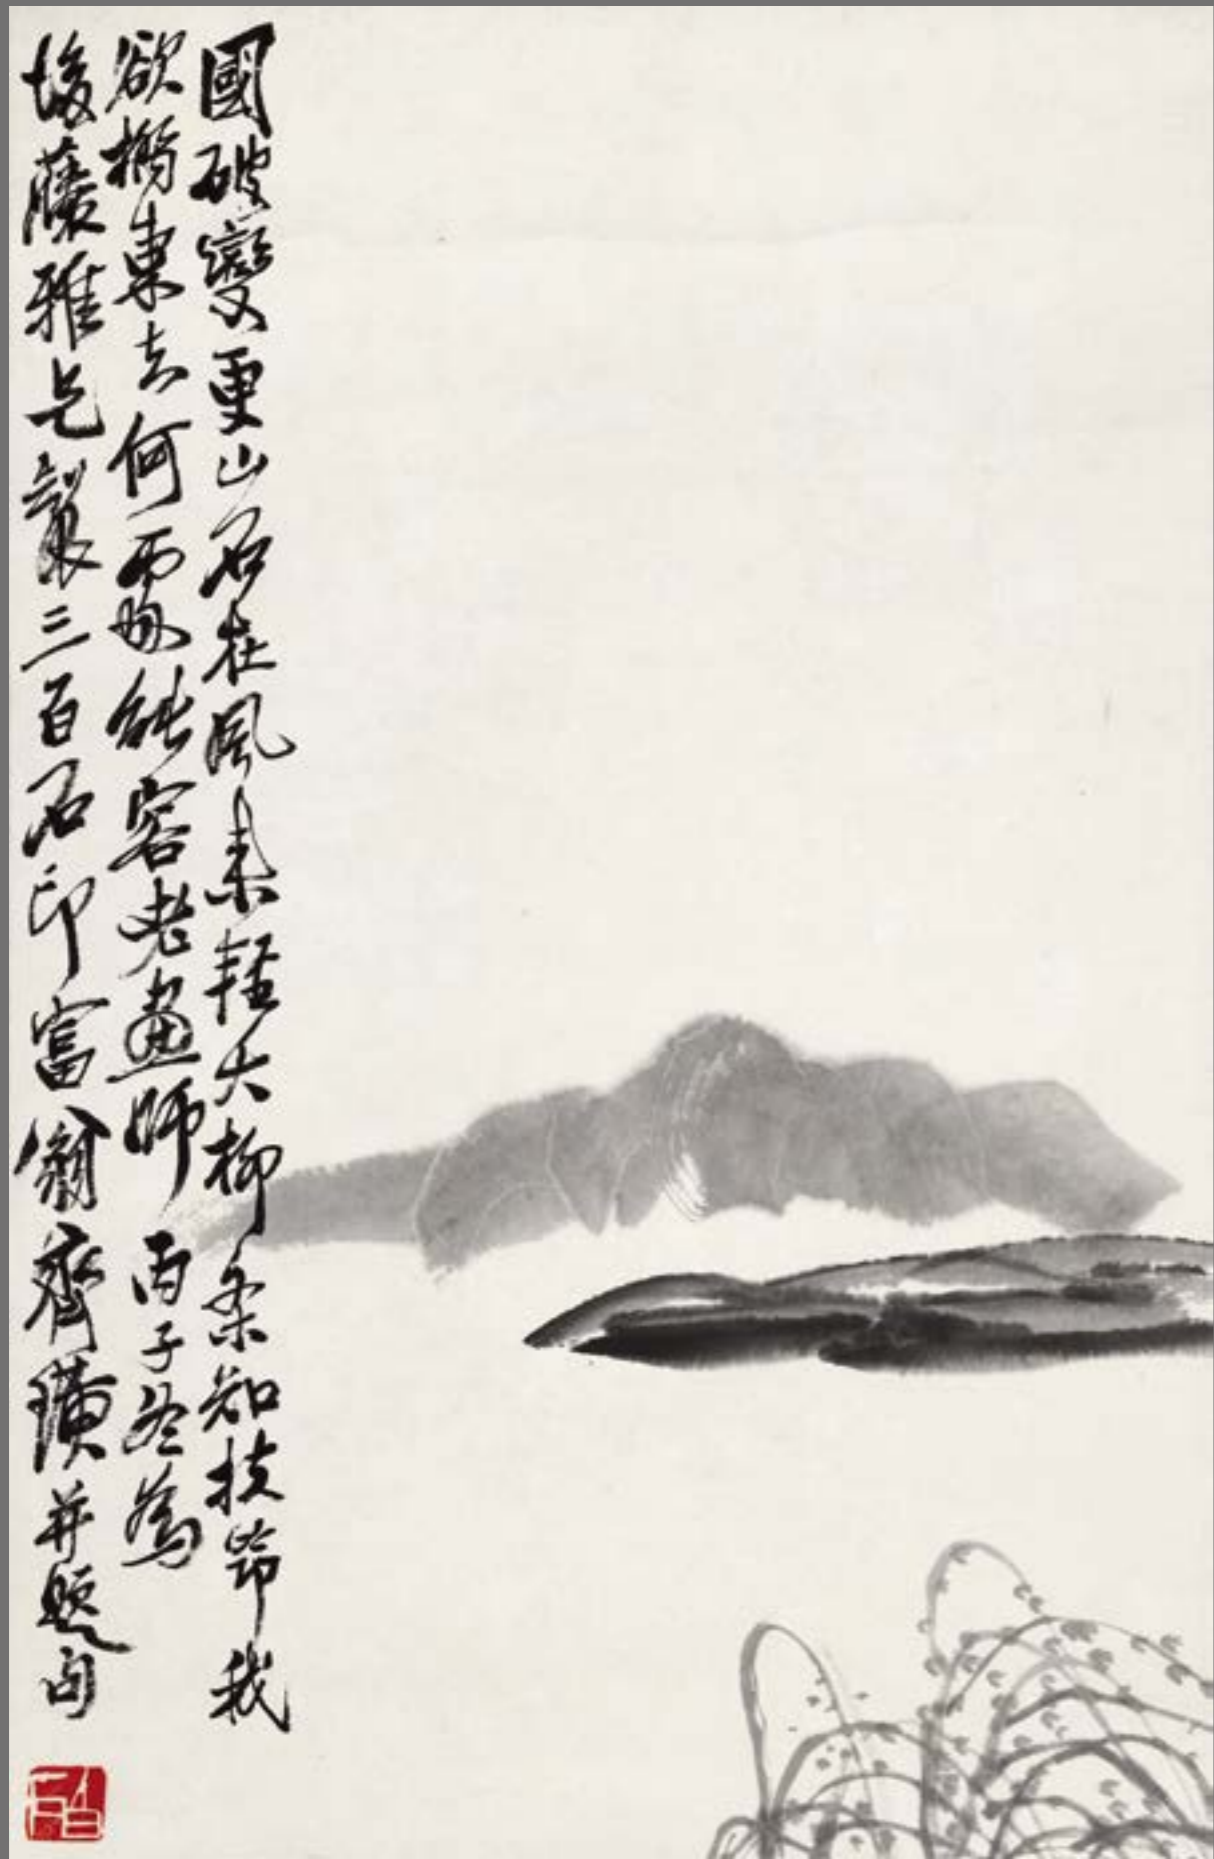 國破變更山石在風来輕大柳条知扶笻我
欲攜東去何處能容老畫師丙子冬為
後藤雅兄製三百石印富翁齊璜并題句
白石